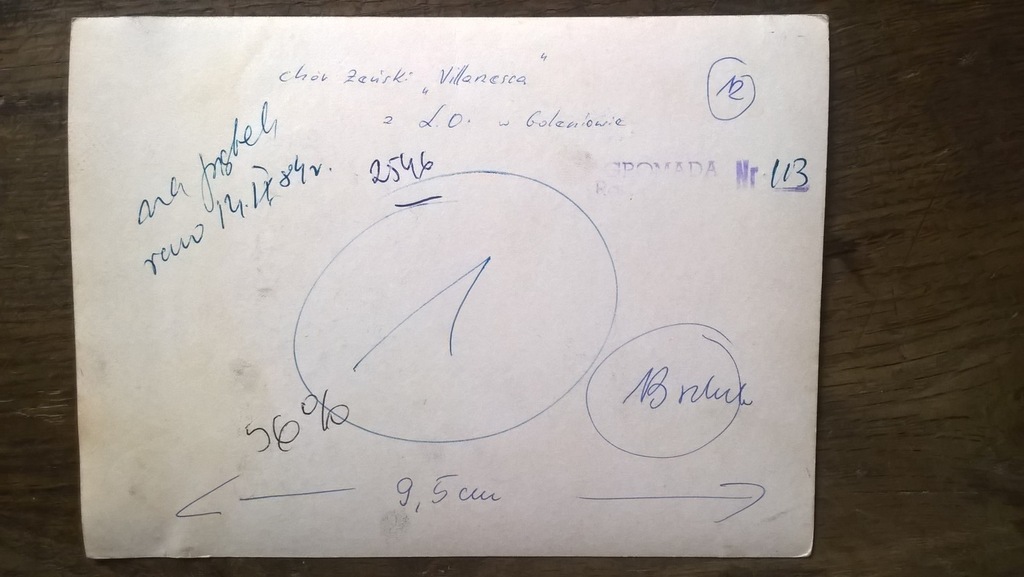 chór żeński „Villanesca"
z L.O. w Goleniowie
12
na
rano 14.IX 84r.
2546
GROMADA Nr 113
1
56%
9,5 cm